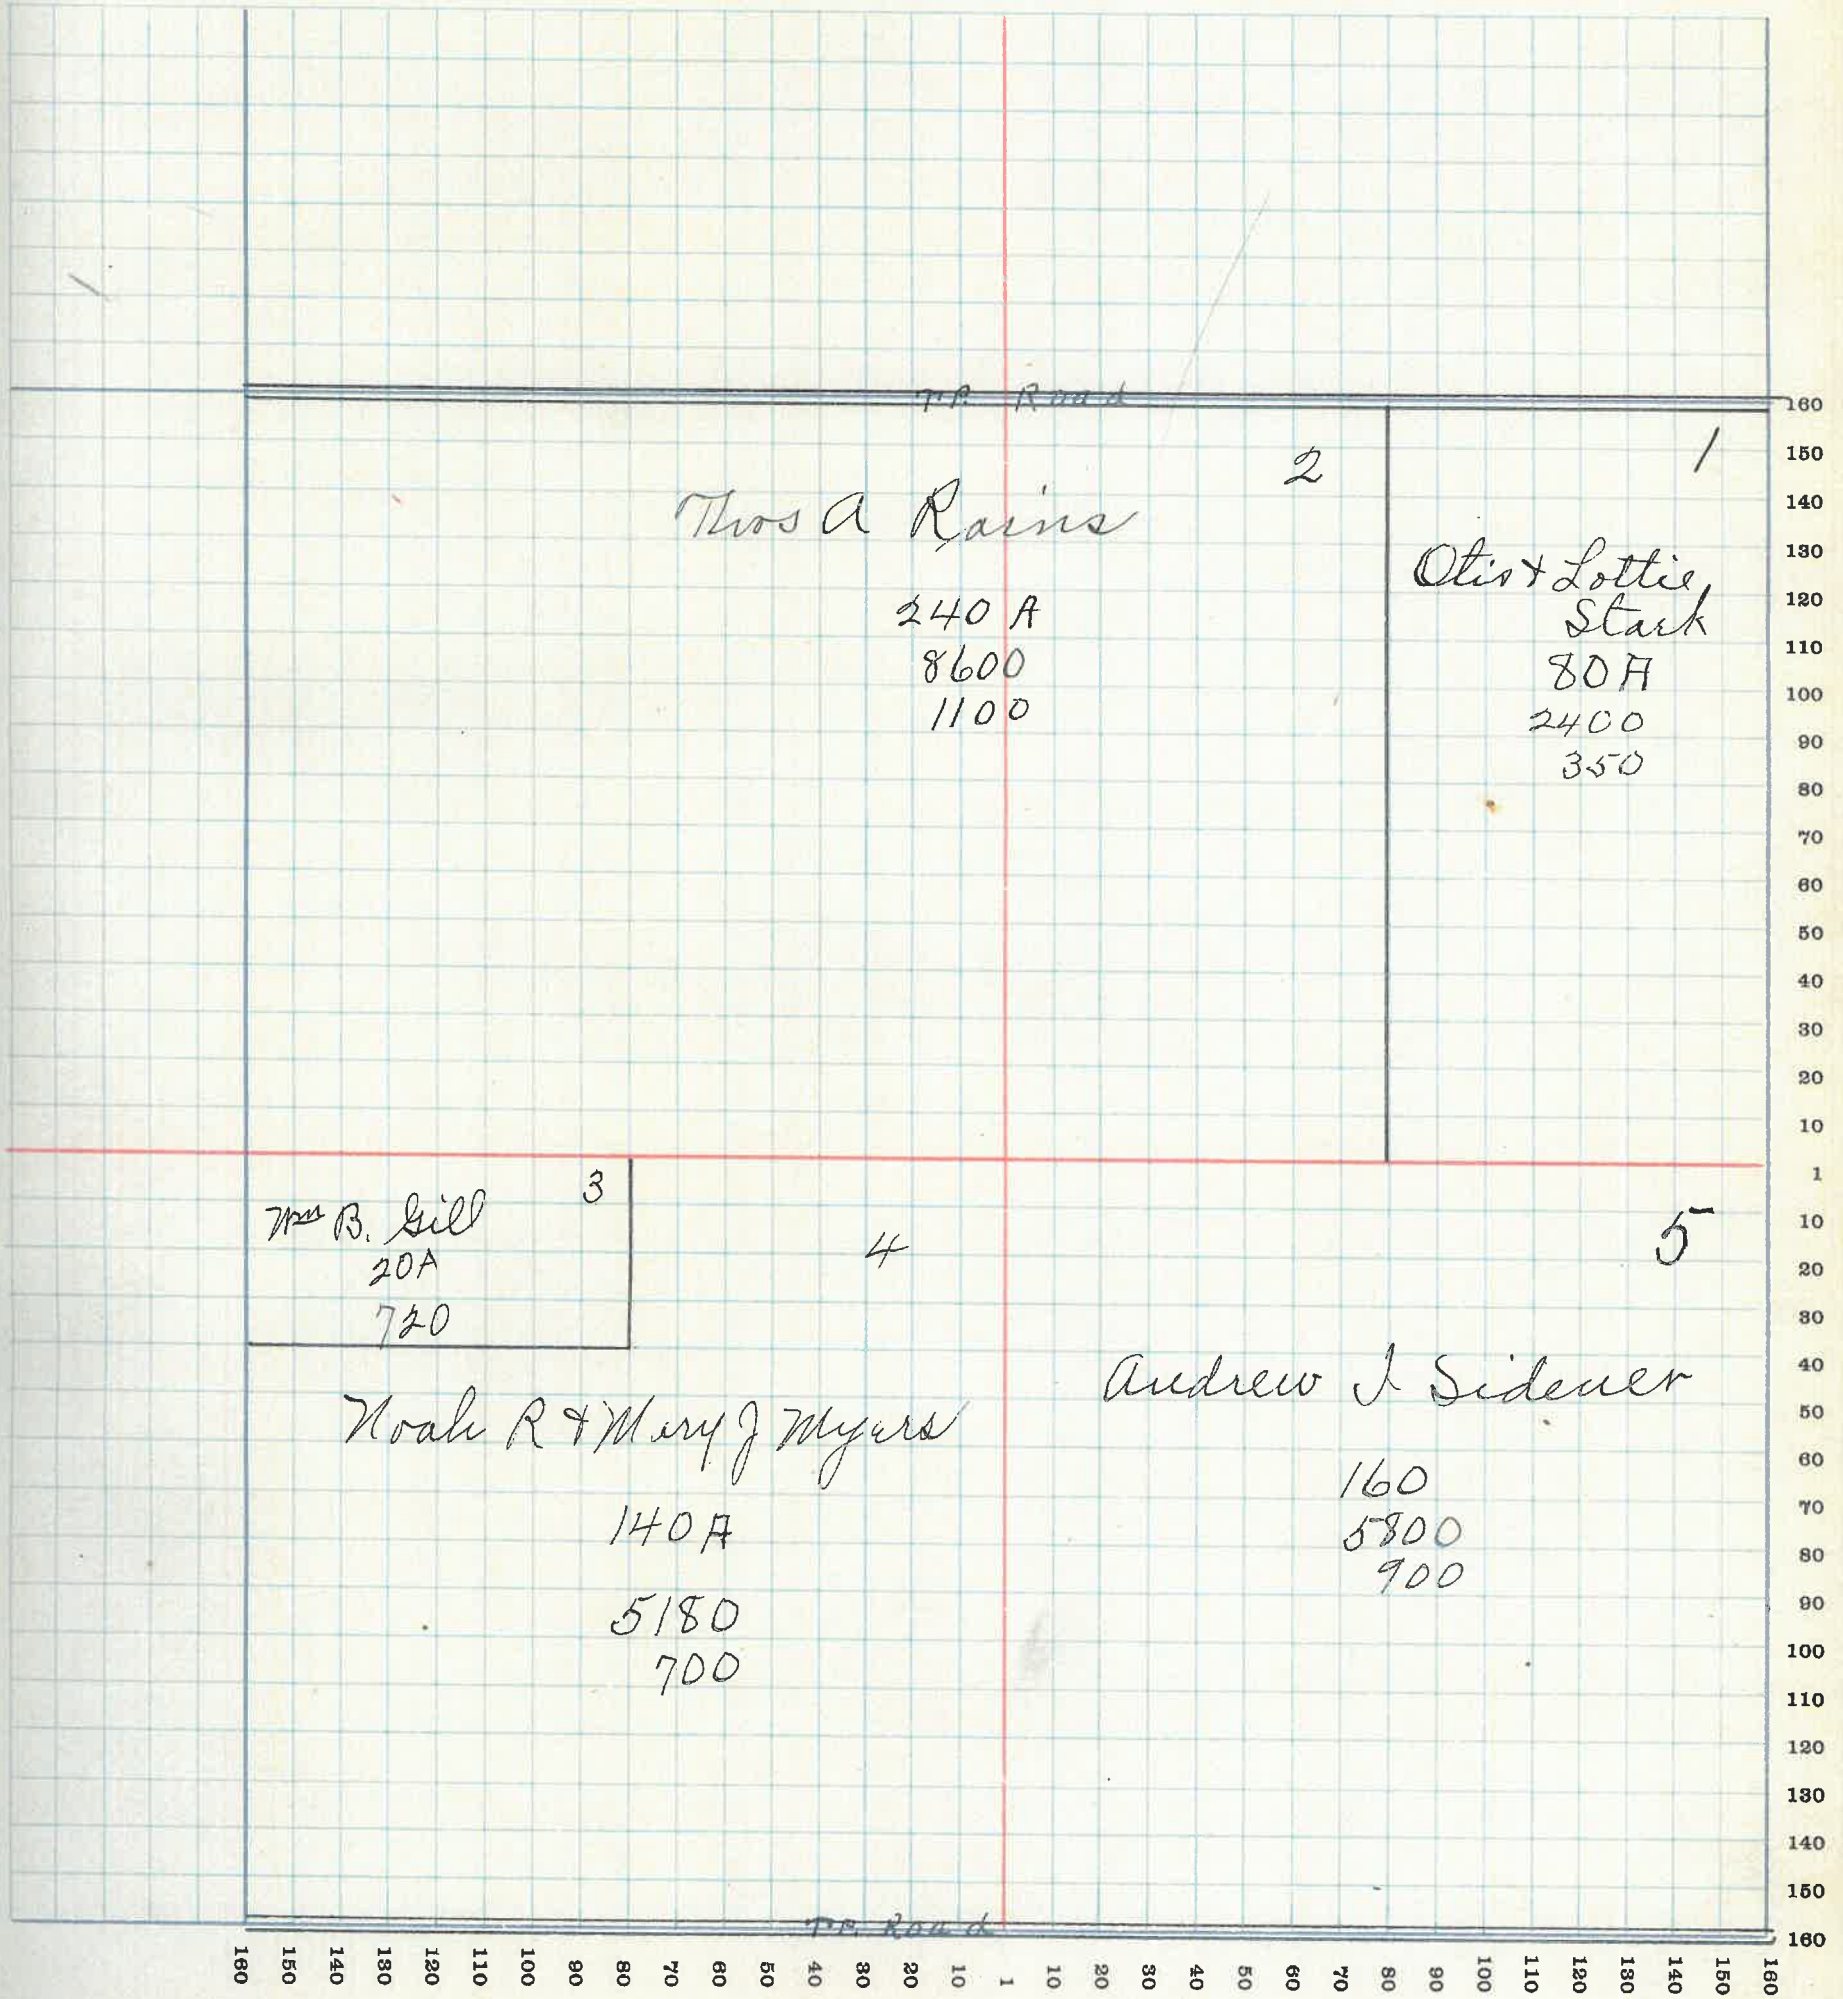 T.P. Road
2
Thos A Rains
240 A
8600
1100
1
Otis & Lottie
Stark
80 A
2400
350
3
Wm B. Gill
20A
720
4
Noah R & Mary J Myers
140 A
5180
700
5
Andrew J Sidener
160
5800
900
T.P. Road
160
150
140
130
120
110
100
90
80
70
60
50
40
30
20
10
1
10
20
30
40
50
60
70
80
90
100
110
120
130
140
150
160
160 150 140 130 120 110 100 90 80 70 60 50 40 30 20 10 1 10 20 30 40 50 60 70 80 90 100 110 120 130 140 150 160